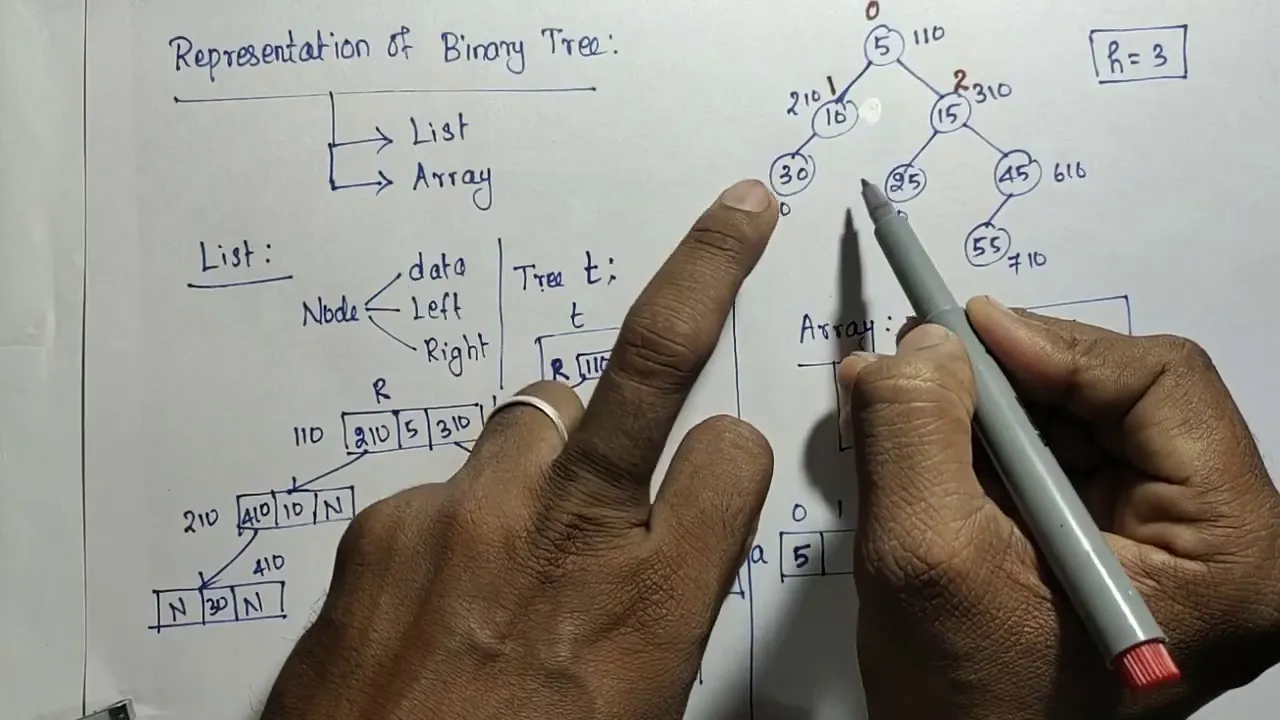 Representation of Binary Tree:
List
Array
0
5 110
h = 3
210 1
10
2
15 310
30
25
45 610
0
55 710
List:
Node
data
Left
Right
Tree t:
t
R 110
Array:
R
110 210 5 310
210 410 10 N
410
N 30 N
0 1
a 5